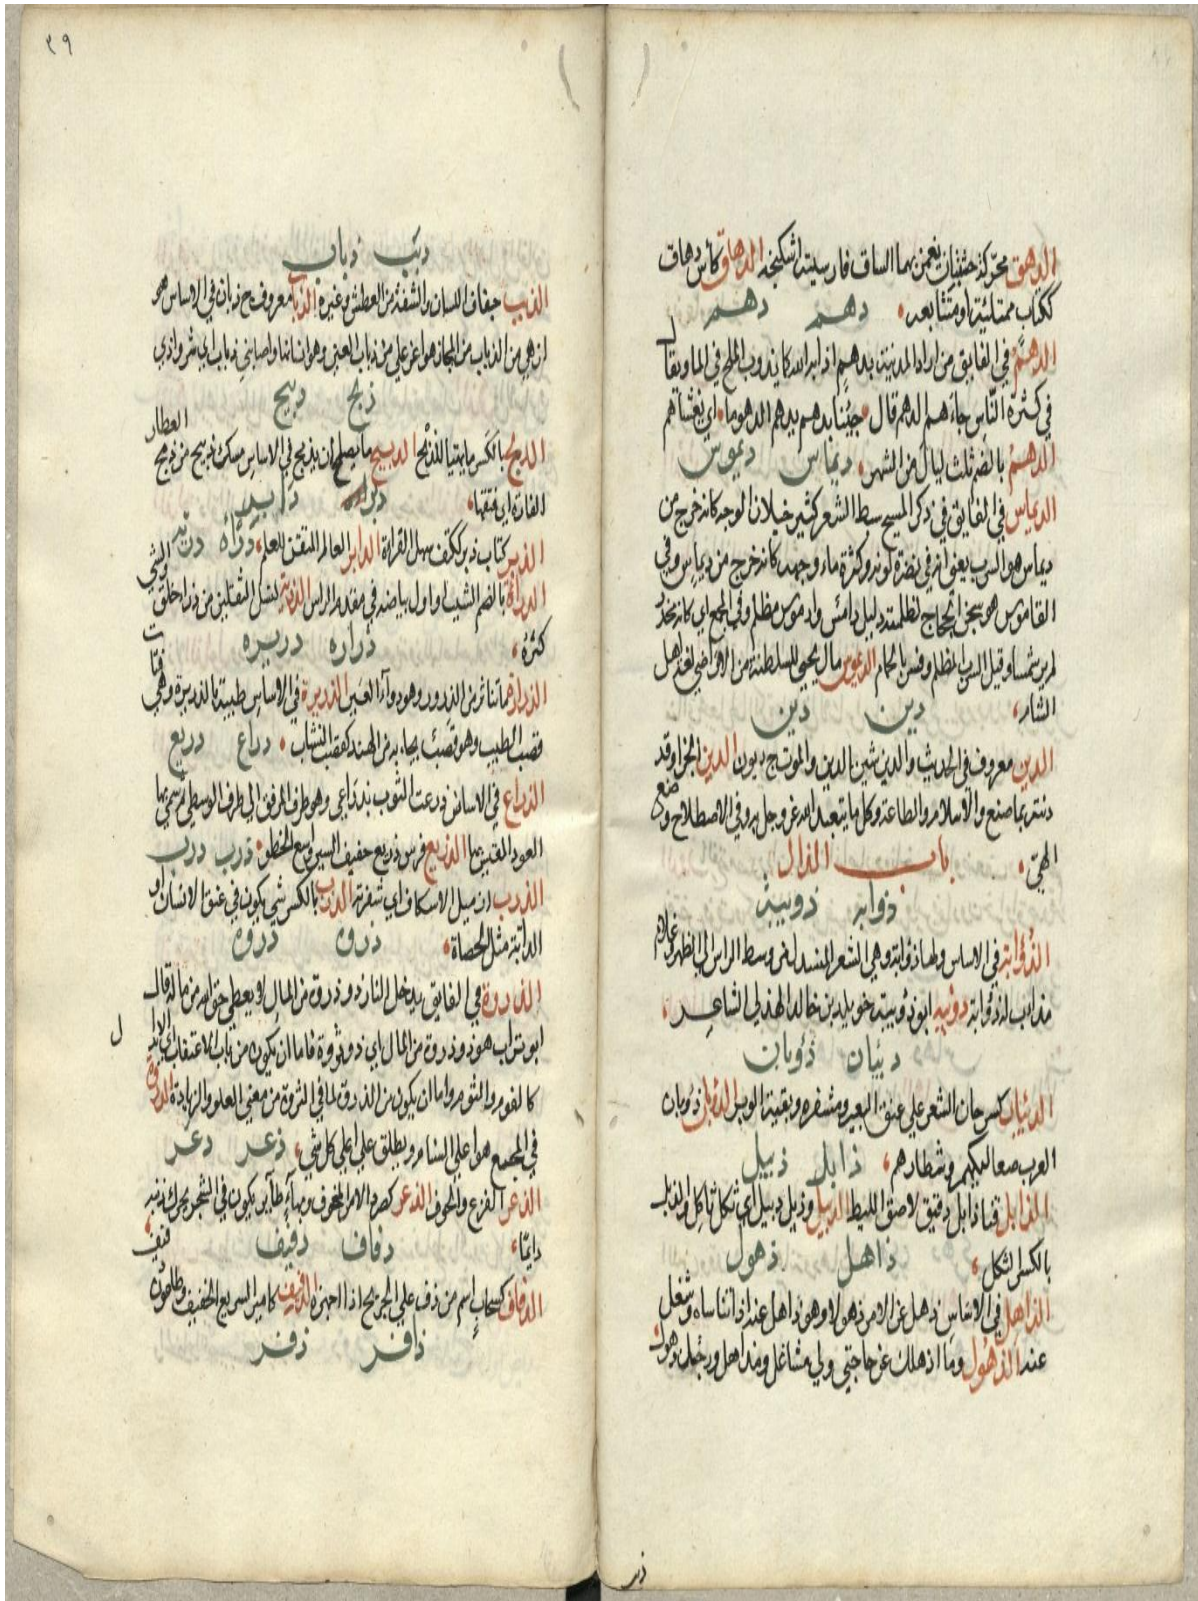 الدهق محركة خشبتان يغمز بهما الساق فارسيته اشكنجه الدهاق كأس دهاق
ككتاب ممتلئة او متتابعه دهم دهم
الدهم في الفايق من اراد المدينة بدهم اذابه الله كما يذوب الملح في الما ويقال
في كثرة الناس جاءهم الدهم قال جئنا بدهم يدهم الدهوما اي يغشاهم
الدهم بالضم ثلث ليال من الشهر ديماس ديموس
الديماس في الفايق في ذكر المسيح سبط الشعر كثير خيلان الوجه كانه خرج من
ديماس هو السرب يعني انه في نضرة لونه وكثرة ماء وجهه كانه خرج من ديماس وفي
القاموس هو سجن الحجاج لظلمته وليل دامس وادموس مظلم وفي المجمع اي كانه مخدر
لم ير شمسا وقيل السرب المظلم وفسر بالحمام الديموس مال يحيى للسلطنة من الاراضي لغة اهل
الشار دين دين
الدين معروف في الحديث والدين شين الدين والموت ج ديون الدين الجزا وقد
دنته بما صنع والاسلام والطاعة وكل ما يتعبد الله عز وجل به وفي الاصطلاح وضع
الهي باب الذال
ذوابه ذويبة
الذؤابة في الاساس ولها ذؤابة وهي الشعر المنسدل من وسط الراس الى الظهر وغلام
مذاب له ذؤابة ذويبه ابو ذؤيبة خويلد بن خالد الهذلي الشاعر
ذيبان ذؤبان
الذئبان كسرحان الشعر على عنق البعير ومشفره وبقية الوبر الذؤبان ذؤبان
العرب صعاليكهم وشطارهم ذابل ذبيل
الذابل قنا ذابل دقيق لاصق الليط الذبيل وذبل ذبيل اي ثكل ثاكل والذبل
بالكسر الثكل ذاهل ذهول
الذاهل في الاساس ذهل عن الامر ذهولا وهو ذاهل عنه اذا تناساه وشغل
عنه الذهول وما اذهلك عن حاجتي ولي مشاغل ومذاهل ورجل ذهول
ذب
٣٩
ذبب ذباب
الذبب جفاف اللسان والشفة من العطش وغيره الذباب معروف ج ذبان في الاساس هو
ازهى من الذباب من المجاز هو اعز علي من ذباب العين وهو انسانها واصابني ذباب اي شر واذي
ذبح ذبيح
الذبح بالكسر ما يهيا للذبح الذبيح ما يصلح ان يذبح في الاساس مسك ذبيح من ذبح العطار
الفارة اي فتقها ذبر ذابر
الذبر كتاب ذبر ككتف سهل القراءة الذابر العالم المتقن للعلم ذرأه ذرية
الذرأة بالضم الشيب او اول بياضه في مقدم الراس الذرية لنسل الثقلين من ذرا خلق والشي
كثره ذراره ذريره
الذرارة ما تناثر من الذرور وهو دوآء العين الذريرة في الاساس طيبة بالذريرة وهي فتات
قصب الطيب وهو قصب يجاء به من الهند كقصب النشاب ذراع ذريع
الذراع في الاساس ذرعت الثوب بذراعي وهو طرف المرفق الى طرف الوسطى ثم سمي بها
العود المقيس بها الذريع فرس ذريع خفيف السير واسع الخطو ذرب ذرب
الذرب ازميل الاسكاف اي شفرته الذرب بالكسر شي يكون في عنق الانسان او
الدابة مثل الحصاة ذروه ذروه
الذروة في الفايق يدخل النار ذو ذروة من المال لا يعطي حق الله من ماله قال
ابو تراب هو ذو ذروة من المال اي ذو ثروة فاما ان يكون من باب الاعتقاب
كالفوم والثوم واما ان يكون من الذروة لما في الثروة من معني العلو والزيادة الذروة
في المجمع هو اعلى السنام ويطلق على اعلى كل شي ذعر ذعر
الذعر الفزع والخوف الذعر كصرد الامر المخوف وبهاء طاير يكون في الشجر يحرك ذنبه
دايما ذفاف ذفيف
الذفاف كسحاب اسم من ذف على الجريح اذا اجهزه الذفيف كامير السريع الخفيف
ذافر ذفر